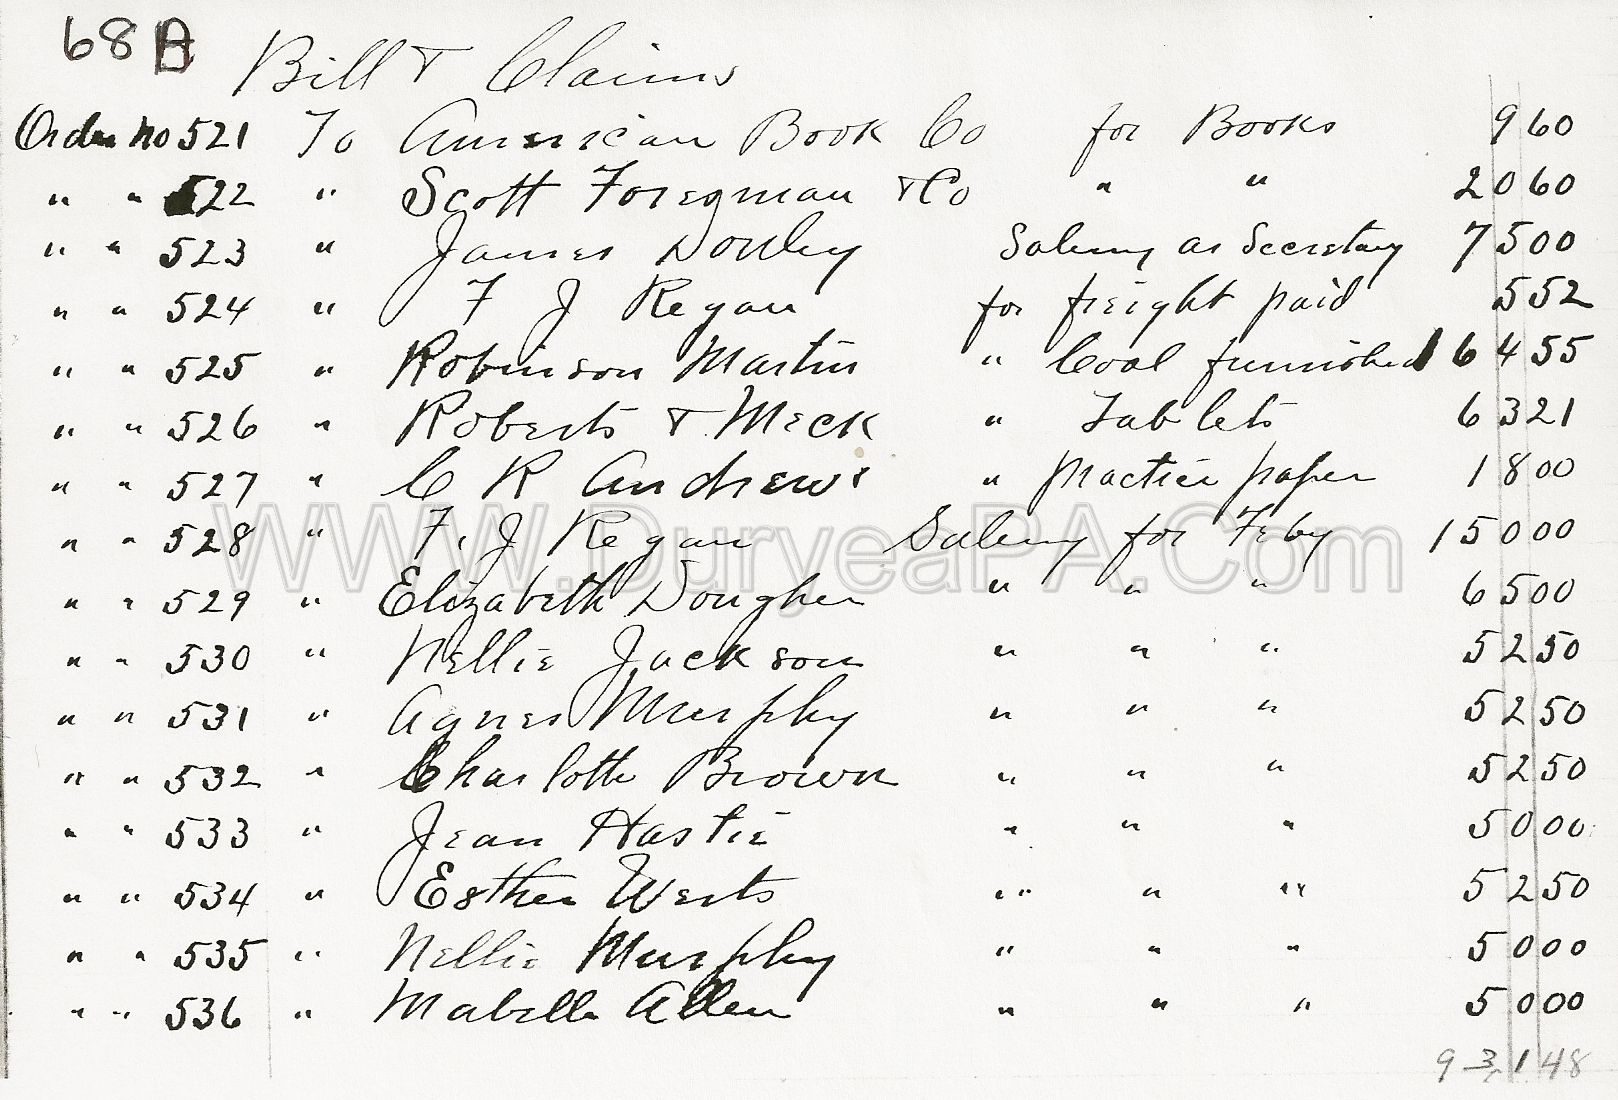 68 A
Bill & Claims
Order no 521 To American Book Co for Books 9 60
" " 522 " Scott Foregman & Co " " 20 60
" " 523 " James Douley Salery as Secretary 75 00
" " 524 " F J Regan for freight paid 5 52
" " 525 " Robinson Martin " Coal furnished 164 55
" " 526 " Roberts & Meck " Tablets 63 21
" " 527 " C R Andrews " practice paper 18 00
" " 528 " F. J Regan Salery for Feby 150 00
" " 529 " Elizabeth Dougher " " " 65 00
" " 530 " Nellie Jackson " " " 52 50
" " 531 " Agnes Murphy " " " 52 50
" " 532 " Charlotte Brown " " " 52 50
" " 533 " Jean Hastie " " " 50 00
" " 534 " Esther Werts " " " 52 50
" " 535 " Nellie Murphy " " " 50 00
" " 536 " Mabelle Allen " " " 50 00
931 48
WWW.DuryeaPA.Com